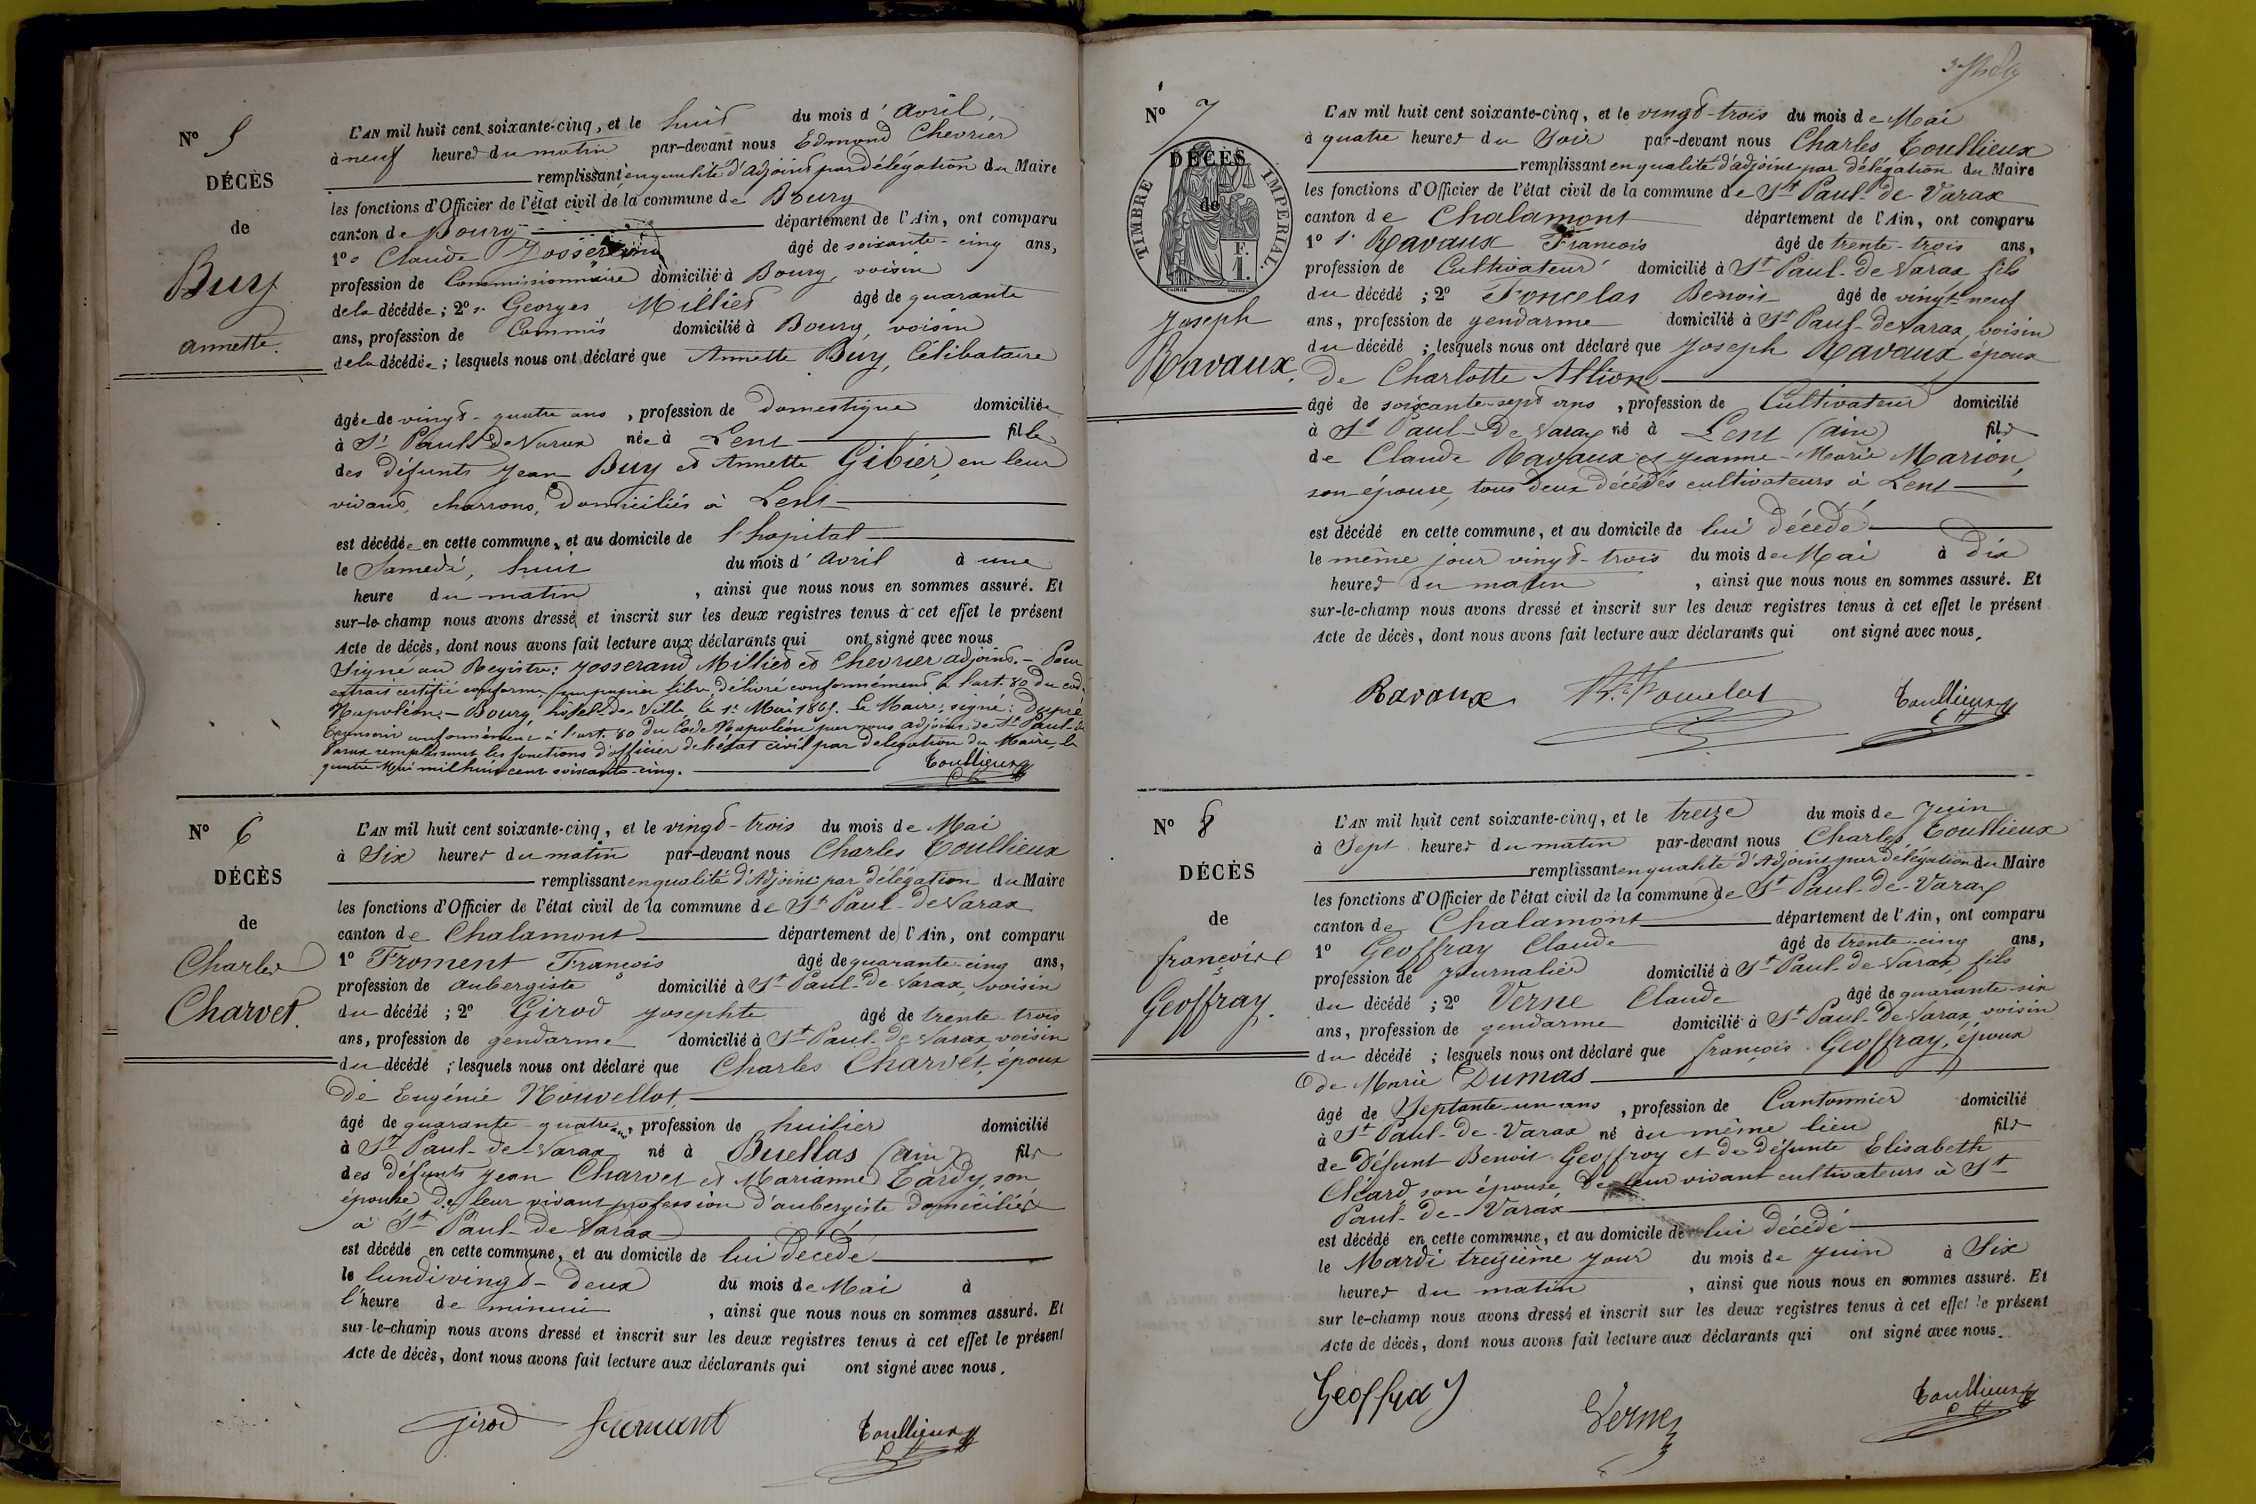 N° 5
DÉCÈS
de
Buy
annette.
L'AN mil huit cent soixante-cinq, et le huit du mois d'avril,
à neuf heures du matin par-devant nous Edmond Chevrier
remplissant en qualité d'Adjoint par délégation du Maire
les fonctions d'Officier de l'état civil de la commune de Bourg
canton de Bourg département de l'Ain, ont comparu
1° Claude Josserand âgé de soixante-cinq ans,
profession de Commissionnaire domicilié à Bourg, voisin
de la décédée ; 2° Georges Milliet âgé de quarante
ans, profession de Commis domicilié à Bourg, voisin
de la décédée ; lesquels nous ont déclaré que Annette Buy, Célibataire
âgée de vingt-quatre ans, profession de domestique domiciliée
à St Paul-de Varax née à Lent fille
des défunts Jean Buy et Annette Gibier, en leur
vivant, charrons, domiciliés à Lent
est décédée en cette commune, et au domicile de l'hopital
le Samedi, huit du mois d'avril à une
heure du matin, ainsi que nous nous en sommes assuré. Et
sur-le-champ nous avons dressé et inscrit sur les deux registres tenus à cet effet le présent
Acte de décès, dont nous avons fait lecture aux déclarants qui ont signé avec nous
Signé au Registre : Josserand Milliet et Chevrier adjoint. – Pour
extrait certifié conforme sur papier libre, délivré conformément à l'art. 80 du code
Napoléon. – Bourg, hôtel-de-Ville le 1er Mai 1865. Le Maire, signé : Dupré
Transcrit conformément à l'art. 80 du Code Napoléon par nous adjoint de St Paul-de
Varax remplissant les fonctions d'officier de l'état civil par délégation du Maire, le
quatre Mai mil huit cent soixante-cinq.
Toullieux
N° 6
DÉCÈS
de
Charles
Charvet.
L'AN mil huit cent soixante-cinq, et le vingt-trois du mois de Mai
à Six heures du matin par-devant nous Charles Toullieux
remplissant en qualité d'Adjoint par délégation du Maire
les fonctions d'Officier de l'état civil de la commune de St Paul-de Varax
canton de Chalamont département de l'Ain, ont comparu
1° Froment François âgé de quarante-cinq ans,
profession de aubergiste domicilié à St Paul-de Varax, voisin
du décédé ; 2° Girod Josephte âgé de trente-trois
ans, profession de gendarme domicilié à St Paul-de Varax voisin
du décédé ; lesquels nous ont déclaré que Charles Charvet, époux
de Eugénie Nouvellot,
âgé de quarante-quatre ans, profession de huilier domicilié
à St Paul-de-Varax né à Buellas (ain) fils
des défunts Jean Charvet et Marianne Tardy, son
épouse de leur vivant profession d'aubergiste domiciliés
à St Paul-de Varax
est décédé en cette commune, et au domicile de lui décédé
le lundi vingt-deux du mois de Mai à
l'heure de minuit, ainsi que nous nous en sommes assuré. Et
sur-le-champ nous avons dressé et inscrit sur les deux registres tenus à cet effet le présent
Acte de décès, dont nous avons fait lecture aux déclarants qui ont signé avec nous.
Girod froment Toullieux
N° 7
TIMBRE IMPÉRIAL.
DÉCÈS
de
F.
1.
Joseph
Ravaux.
L'AN mil huit cent soixante-cinq, et le vingt-trois du mois de Mai
à quatre heures du Soir par-devant nous Charles Toullieux
remplissant en qualité d'adjoint par délégation du Maire
les fonctions d'Officier de l'état civil de la commune de St Paul-de Varax
canton de Chalamont département de l'Ain, ont comparu
1° Ravaux François âgé de trente-trois ans,
profession de Cultivateur domicilié à St Paul-de Varax fils
du décédé ; 2° Foncelas Benoit âgé de vingt-neuf
ans, profession de gendarme domicilié à St Paul-de Varax, voisin
du décédé ; lesquels nous ont déclaré que Joseph Ravaux, époux
de Charlotte Allion
âgé de soixante-sept ans, profession de Cultivateur domicilié
à St Paul-de Varax né à Lent (ain) fils
de Claude Ravaux et Jeanne-Marie Marion,
son épouse, tous deux décédés cultivateurs à Lent
est décédé en cette commune, et au domicile de lui décédé
le même jour vingt-trois du mois de Mai à dix
heures du matin, ainsi que nous nous en sommes assuré. Et
sur-le-champ nous avons dressé et inscrit sur les deux registres tenus à cet effet le présent
Acte de décès, dont nous avons fait lecture aux déclarants qui ont signé avec nous.
Ravaux Toullieux
N° 8
DÉCÈS
de
françois
Geoffray.
L'AN mil huit cent soixante-cinq, et le treize du mois de Juin
à Sept heures du matin par-devant nous Charles Toullieux
remplissant en qualité d'Adjoint par délégation du Maire
les fonctions d'Officier de l'état civil de la commune de St Paul-de-Varax
canton de Chalamont département de l'Ain, ont comparu
1° Geoffray Claude âgé de trente-cinq ans,
profession de Journalier domicilié à St Paul-de Varax, fils
du décédé ; 2° Verne Claude âgé de quarante-six
ans, profession de gendarme domicilié à St Paul-de Varax, voisin
du décédé ; lesquels nous ont déclaré que françois Geoffray, époux
de Marie Dumas
âgé de Septante-un ans, profession de Cantonnier domicilié
à St Paul-de-Varax né au même lieu fils
de Défunt Benoit Geoffroy et de défunte Elisabeth
Cléard, son épouse, de leur vivant cultivateurs à St
Paul-de-Varax
est décédé en cette commune, et au domicile de lui décédé
le Mardi treizième jour du mois de Juin à Six
heures du matin, ainsi que nous nous en sommes assuré. Et
sur le-champ nous avons dressé et inscrit sur les deux registres tenus à cet effet le présent
Acte de décès, dont nous avons fait lecture aux déclarants qui ont signé avec nous.
Geoffray Verne Toullieux